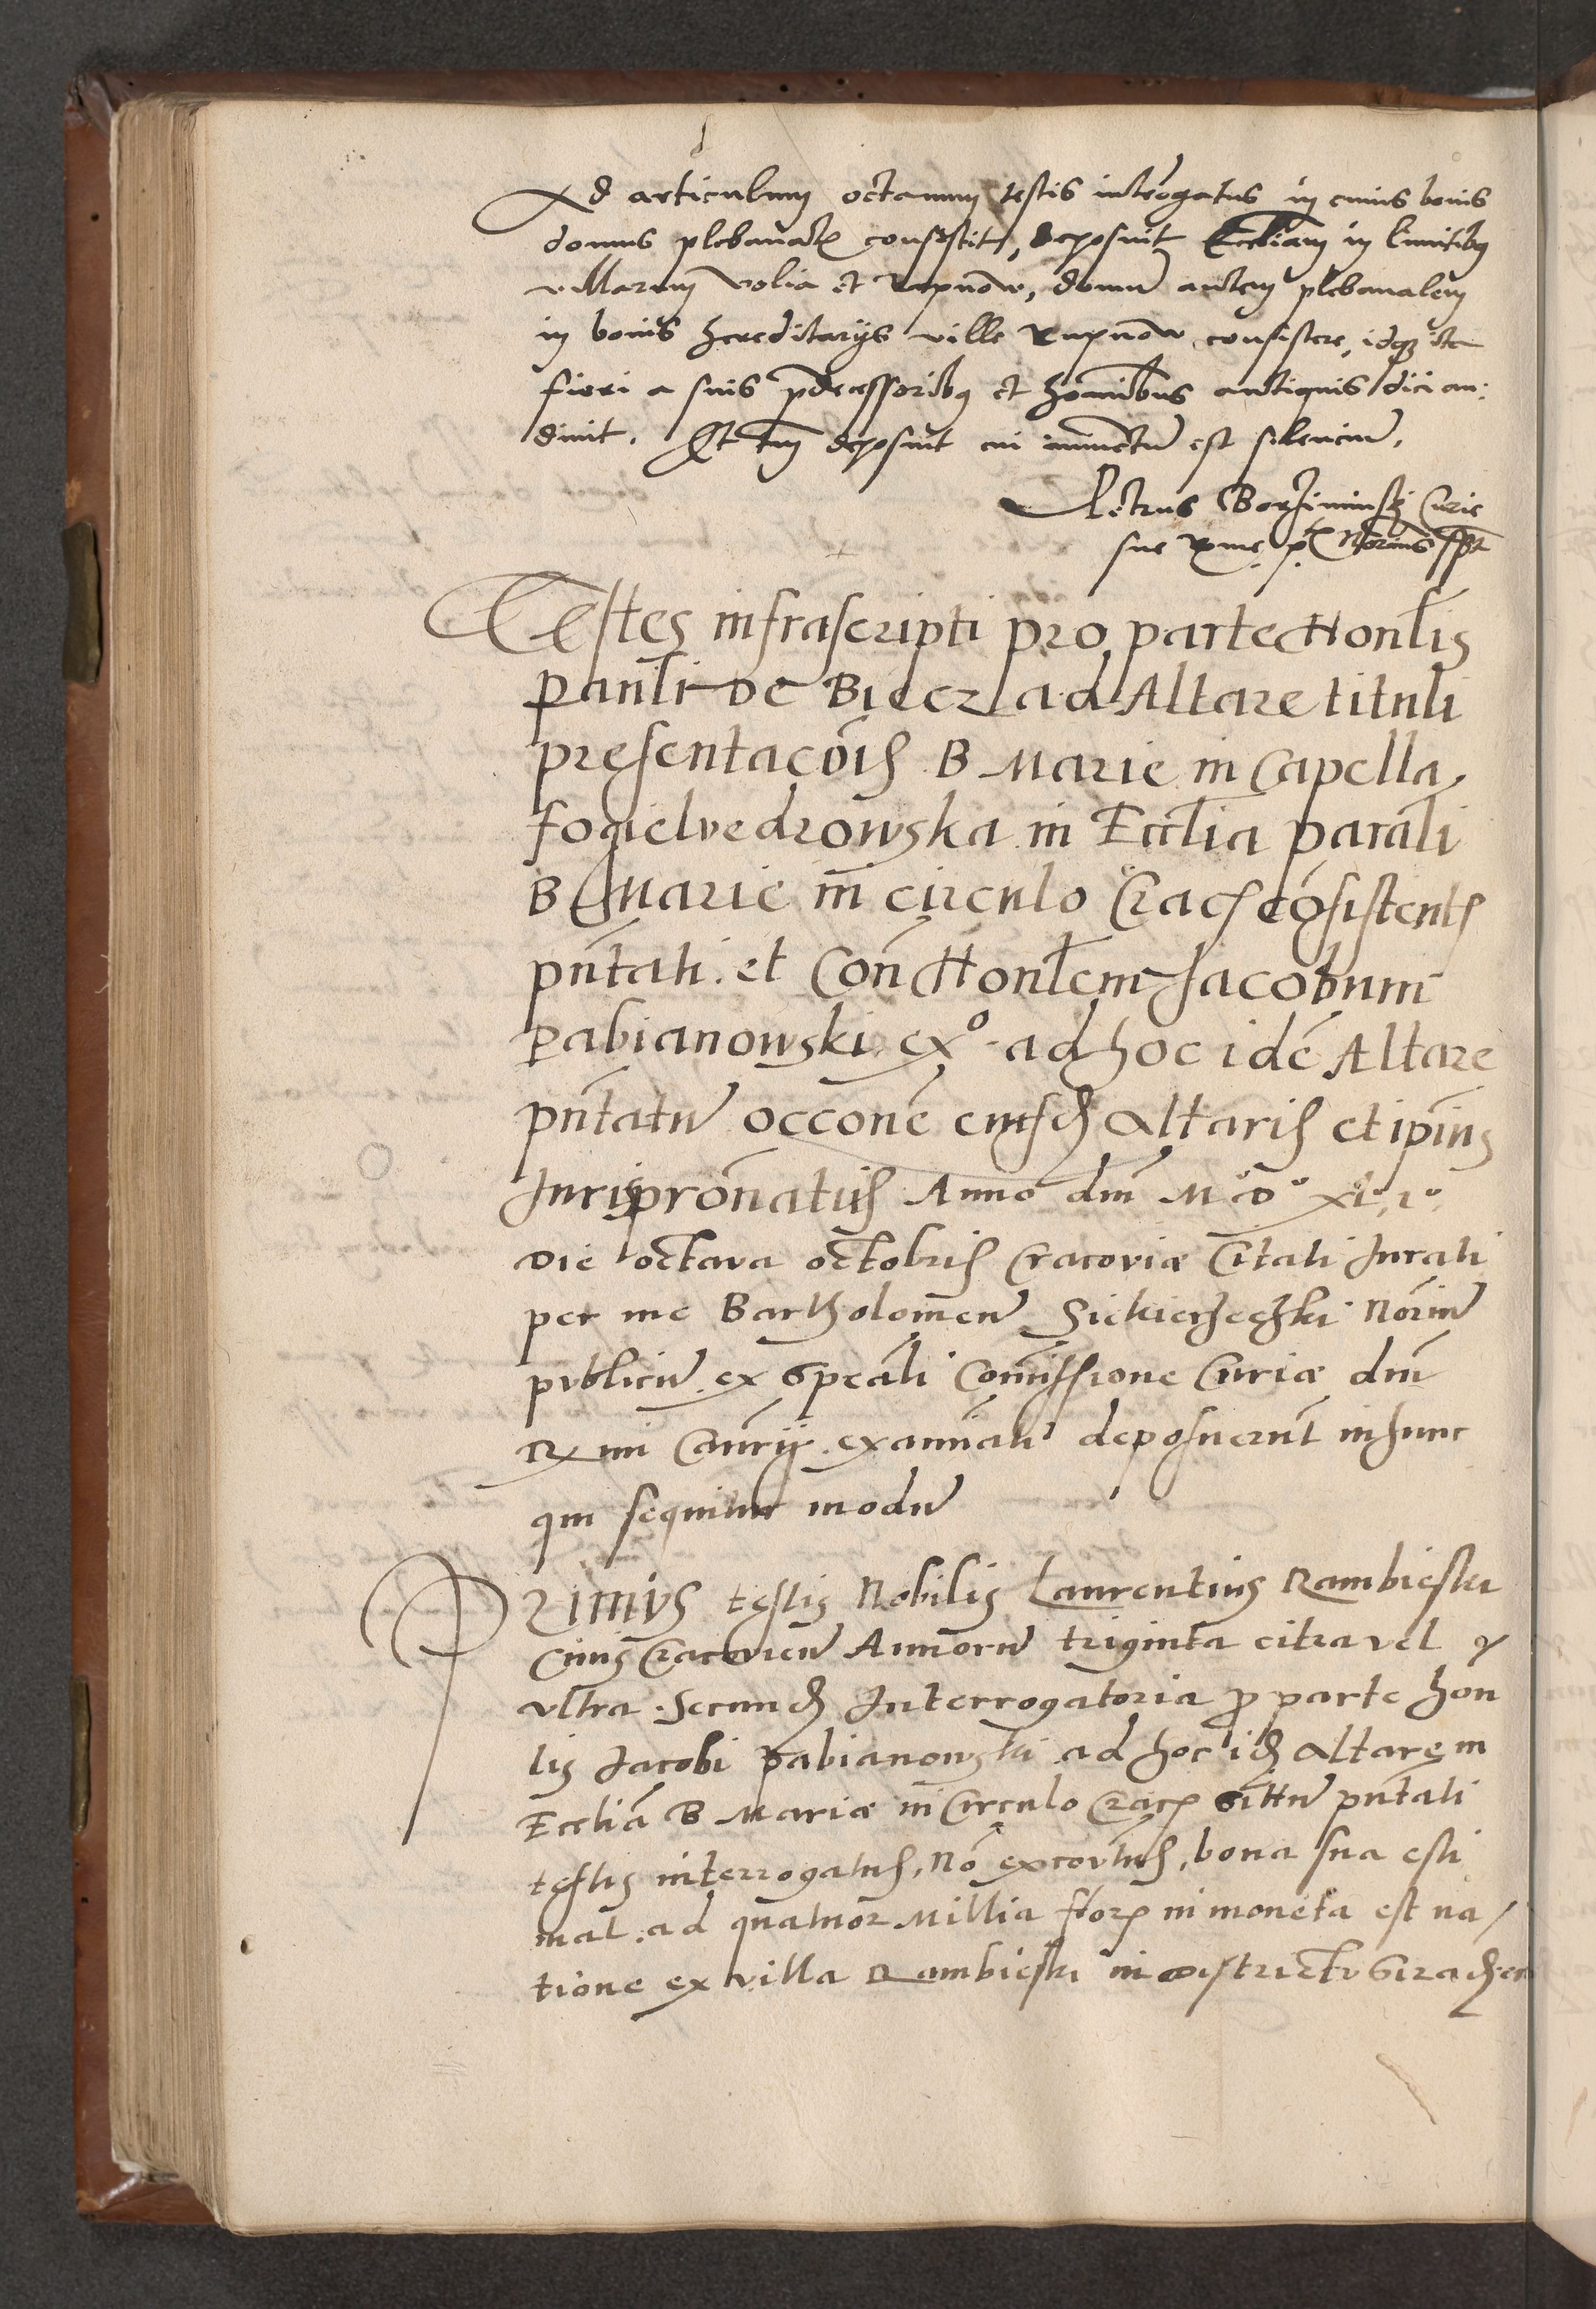 Ad articulum octauum testis interogatus in cuius bonis
domus plebanat consistit, deposuit Eccliam in limitibus
villarum volia et Rupnow, domum autem plebanalem
in bonis hereditarijs ville Rupnow consistere, idque ita
fieri a suis predecessoribus et hominibus antiquis dici au:
diuit. Et tm deposuit cui iniunctum est silencium.
Petrus Borziminskj Curie
sue Rme p Notarius sst
Testes infrascripti pro parte Honlis
Pauli de Biecz ad Altare tituli
presentacois B Marie in Capella
fogielvedrowska in Ecclia parali
B Marie in circulo Crac consistent
pntati. et Con Honlem Jacobum
Pabianowski ex⁰ ad hoc idē Altare
pntatum occone eiusd Altaris et ipius
Juris pronatus Anno dni M⁰ D⁰ xl⁰ 1⁰
Die octava octobris Cracoviæ Citati Jurati
per me Bartholomeum Siekierzeczki Notarium
publicum ex speali Comissione Curiæ dni
Rmi examinati deposuerunt in hunc
qui sequitur modum
Primus testis Nobilis Laurentius Rambieski
Ciuis Cracovien Annorum triginta citra vel
vltra. Secund Interrogatoria pro parte hon
lis Jacobi Pabianowski ad hoc id altare in
Eccliā B Mariæ in Circulo Crac sittum pntati
testis interrogatus, Nō excoitus, bona sua esti
mat. ad quatuor Millia flor in moneta est na/
tione ex villa Rambieski in districtu Siradien